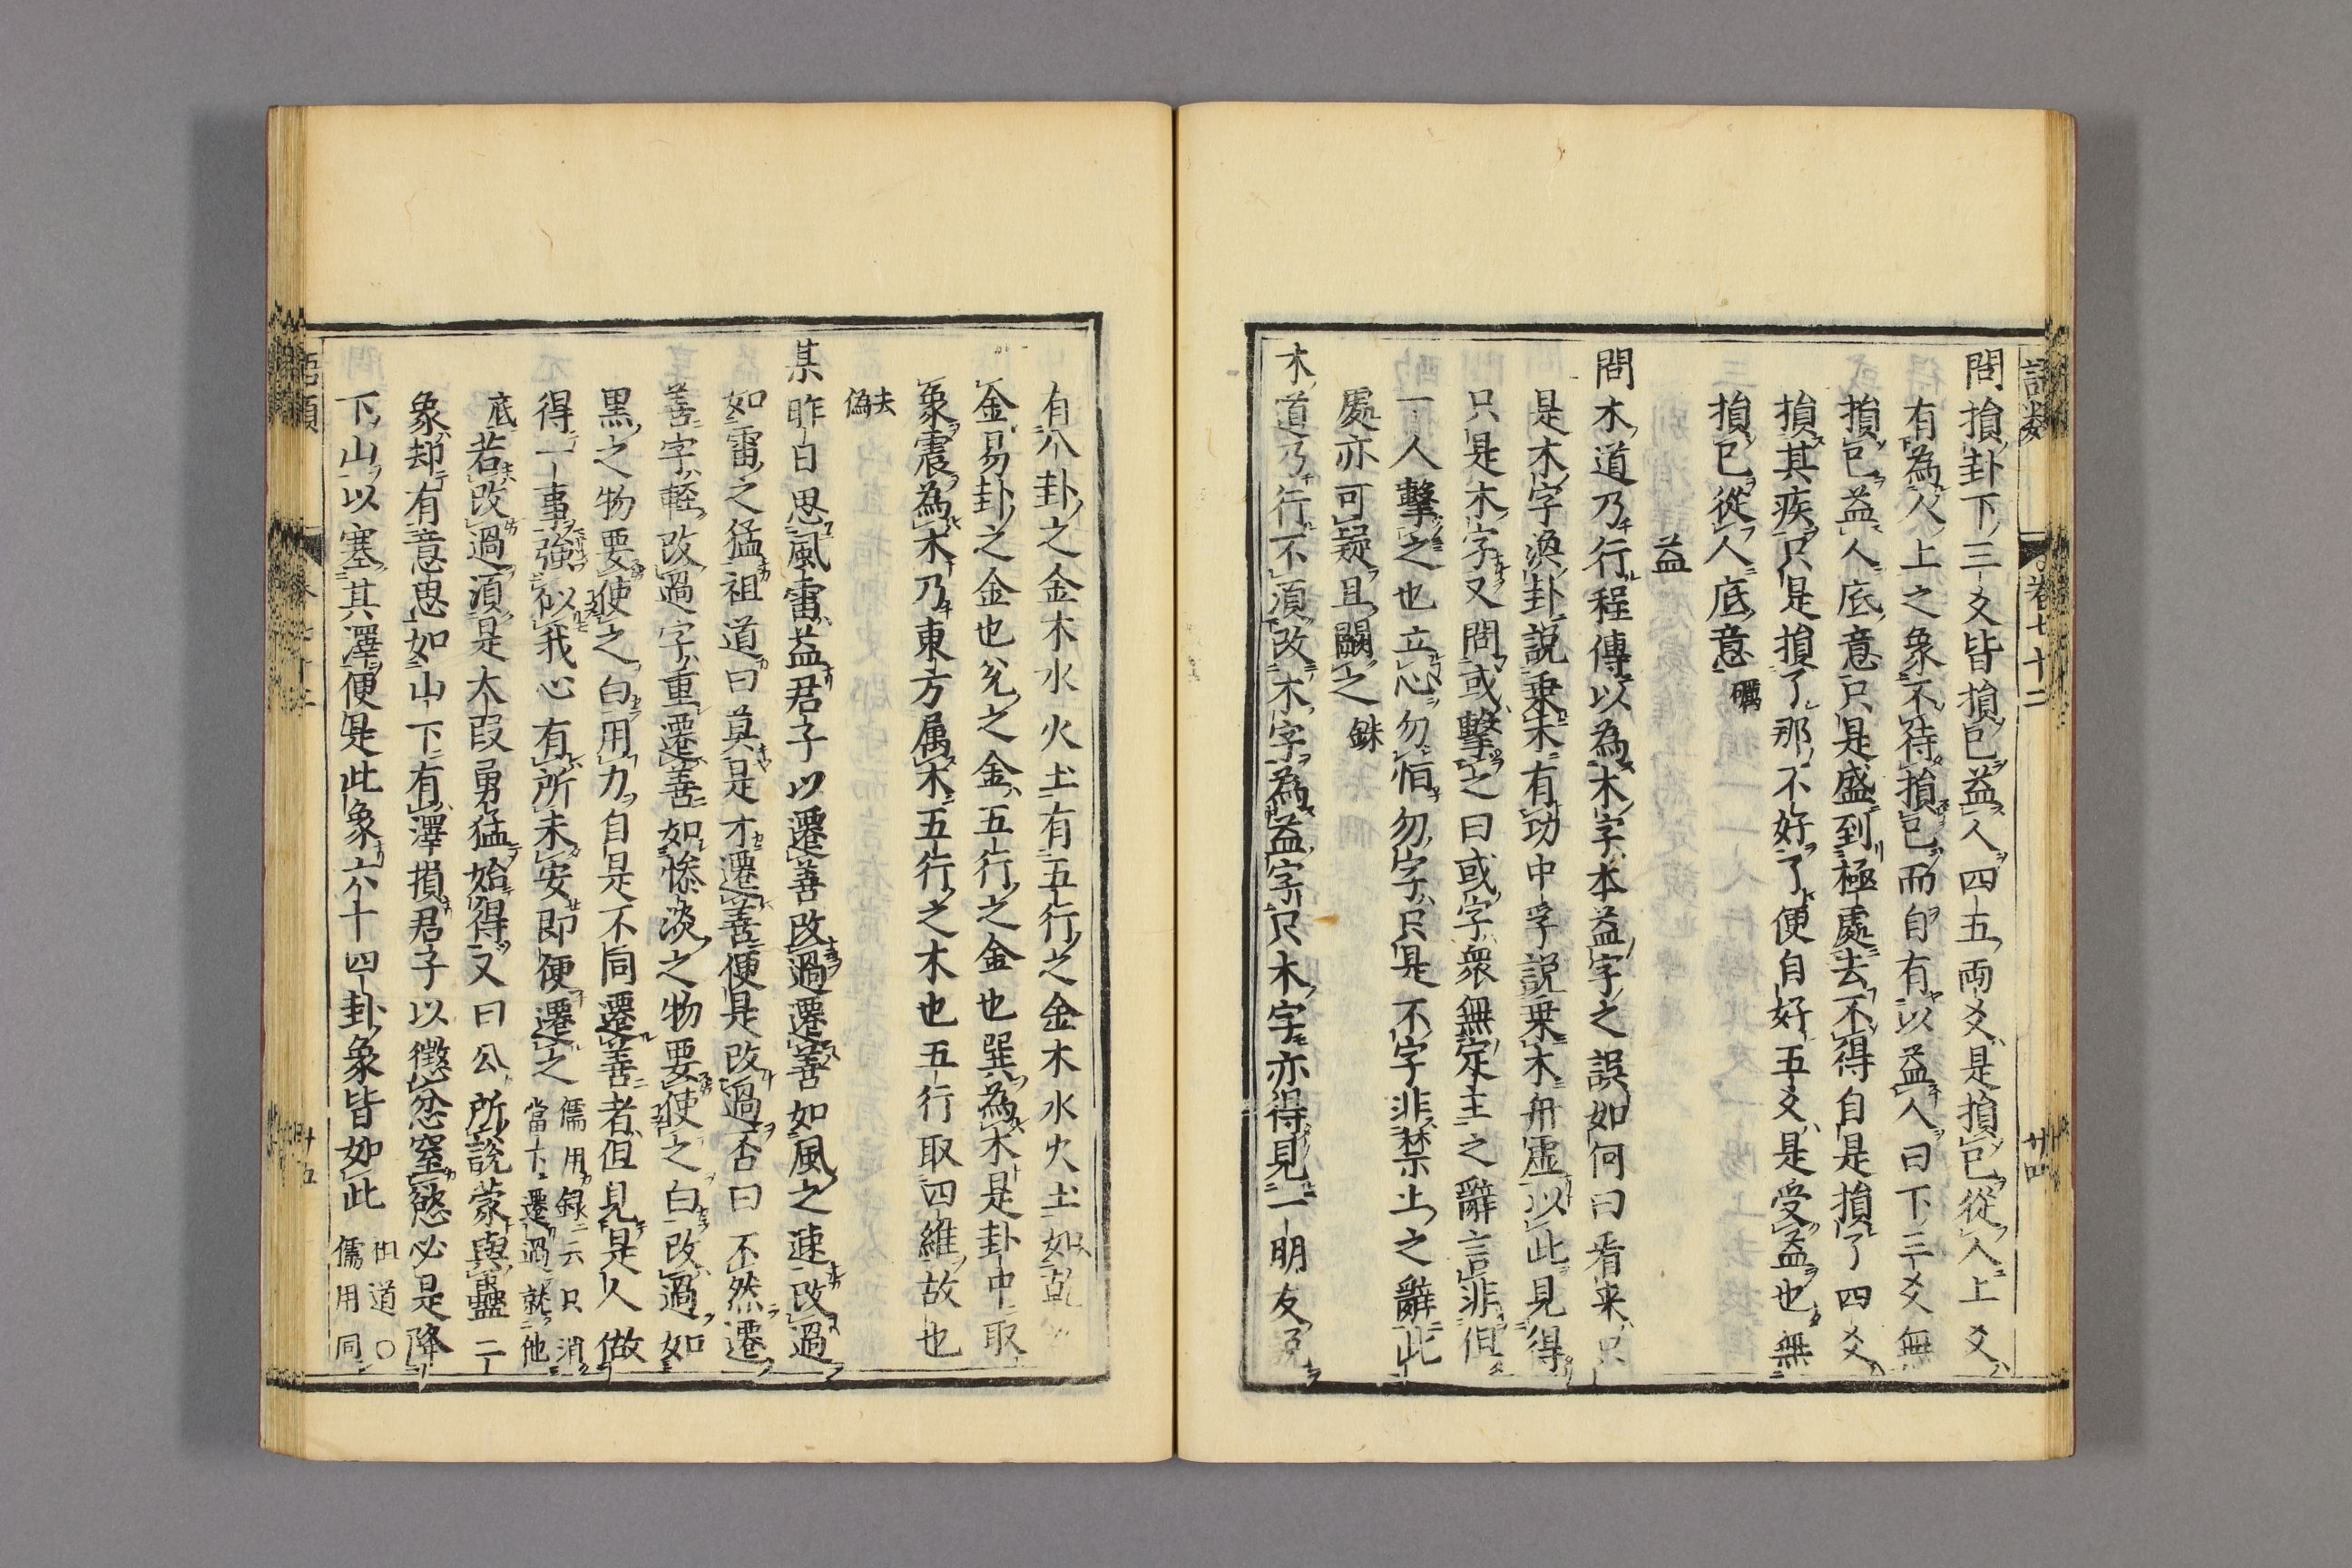 語類 卷七十二 廿四
問損卦下三爻皆損己益人四五兩爻是損己從人上爻
有為人上之象不待損己而自有以益人曰下三爻無
損己益人底意只是盛到極處去不得自是損了四爻
損其疾只是損了那不好了便自好五爻是受益也無
損己從人底意礪
益
問木道乃行程傳以為木字本益字之誤如何曰看来只
是木字渙卦説乗木有功中孚説乗木舟虛以此見得
只是木字又問或擊之曰或字衆無定主之辭言非但
一人擊之也立心勿恒勿字只是不字非禁止之辭此
處亦可疑且闕之銖
木道乃行不須改木字為益字只木字亦得見一朋友説
有八卦之金木水火土有五行之金木水火土如乾
金易卦之金也兌之金五行之金也巽為木是卦中取
象震為木乃東方属木五行之木也五行取四維故也
去偽
某昨日思風雷益君子以遷善改過遷善如風之速改過
如雷之猛祖道曰莫是才遷善便是改過否曰不然遷
善字輕改過字重遷善如慘淡之物要使之白改過如
黒之物要使之白用力自是不同遷善者但見是人做
得一事強似我心有所未安即便遷之儒用録云只消當下遷過就他
底若改過須是大段勇猛始得又曰公所説蒙與蠱二
象却有意思如山下有澤損君子以懲忿窒慾必是降
下山以塞其澤便是此象六十四卦象皆如此祖道〇儒用同
語類 卷七十二 廿五